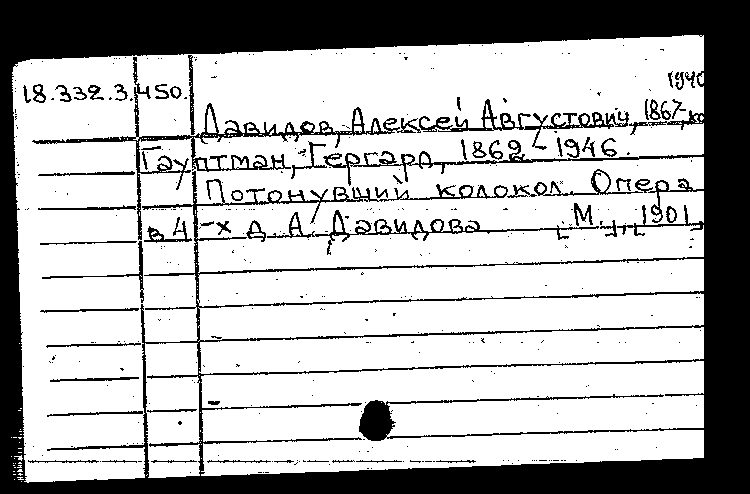 1940
18.332.3.450.
Давидов, Алексей Августович, 1867, ко
Гауптман, Гергард, 1862 - 1946.
Потонувший колокол. Опера
в 4-х д. А. Давидова [М.], [1901]